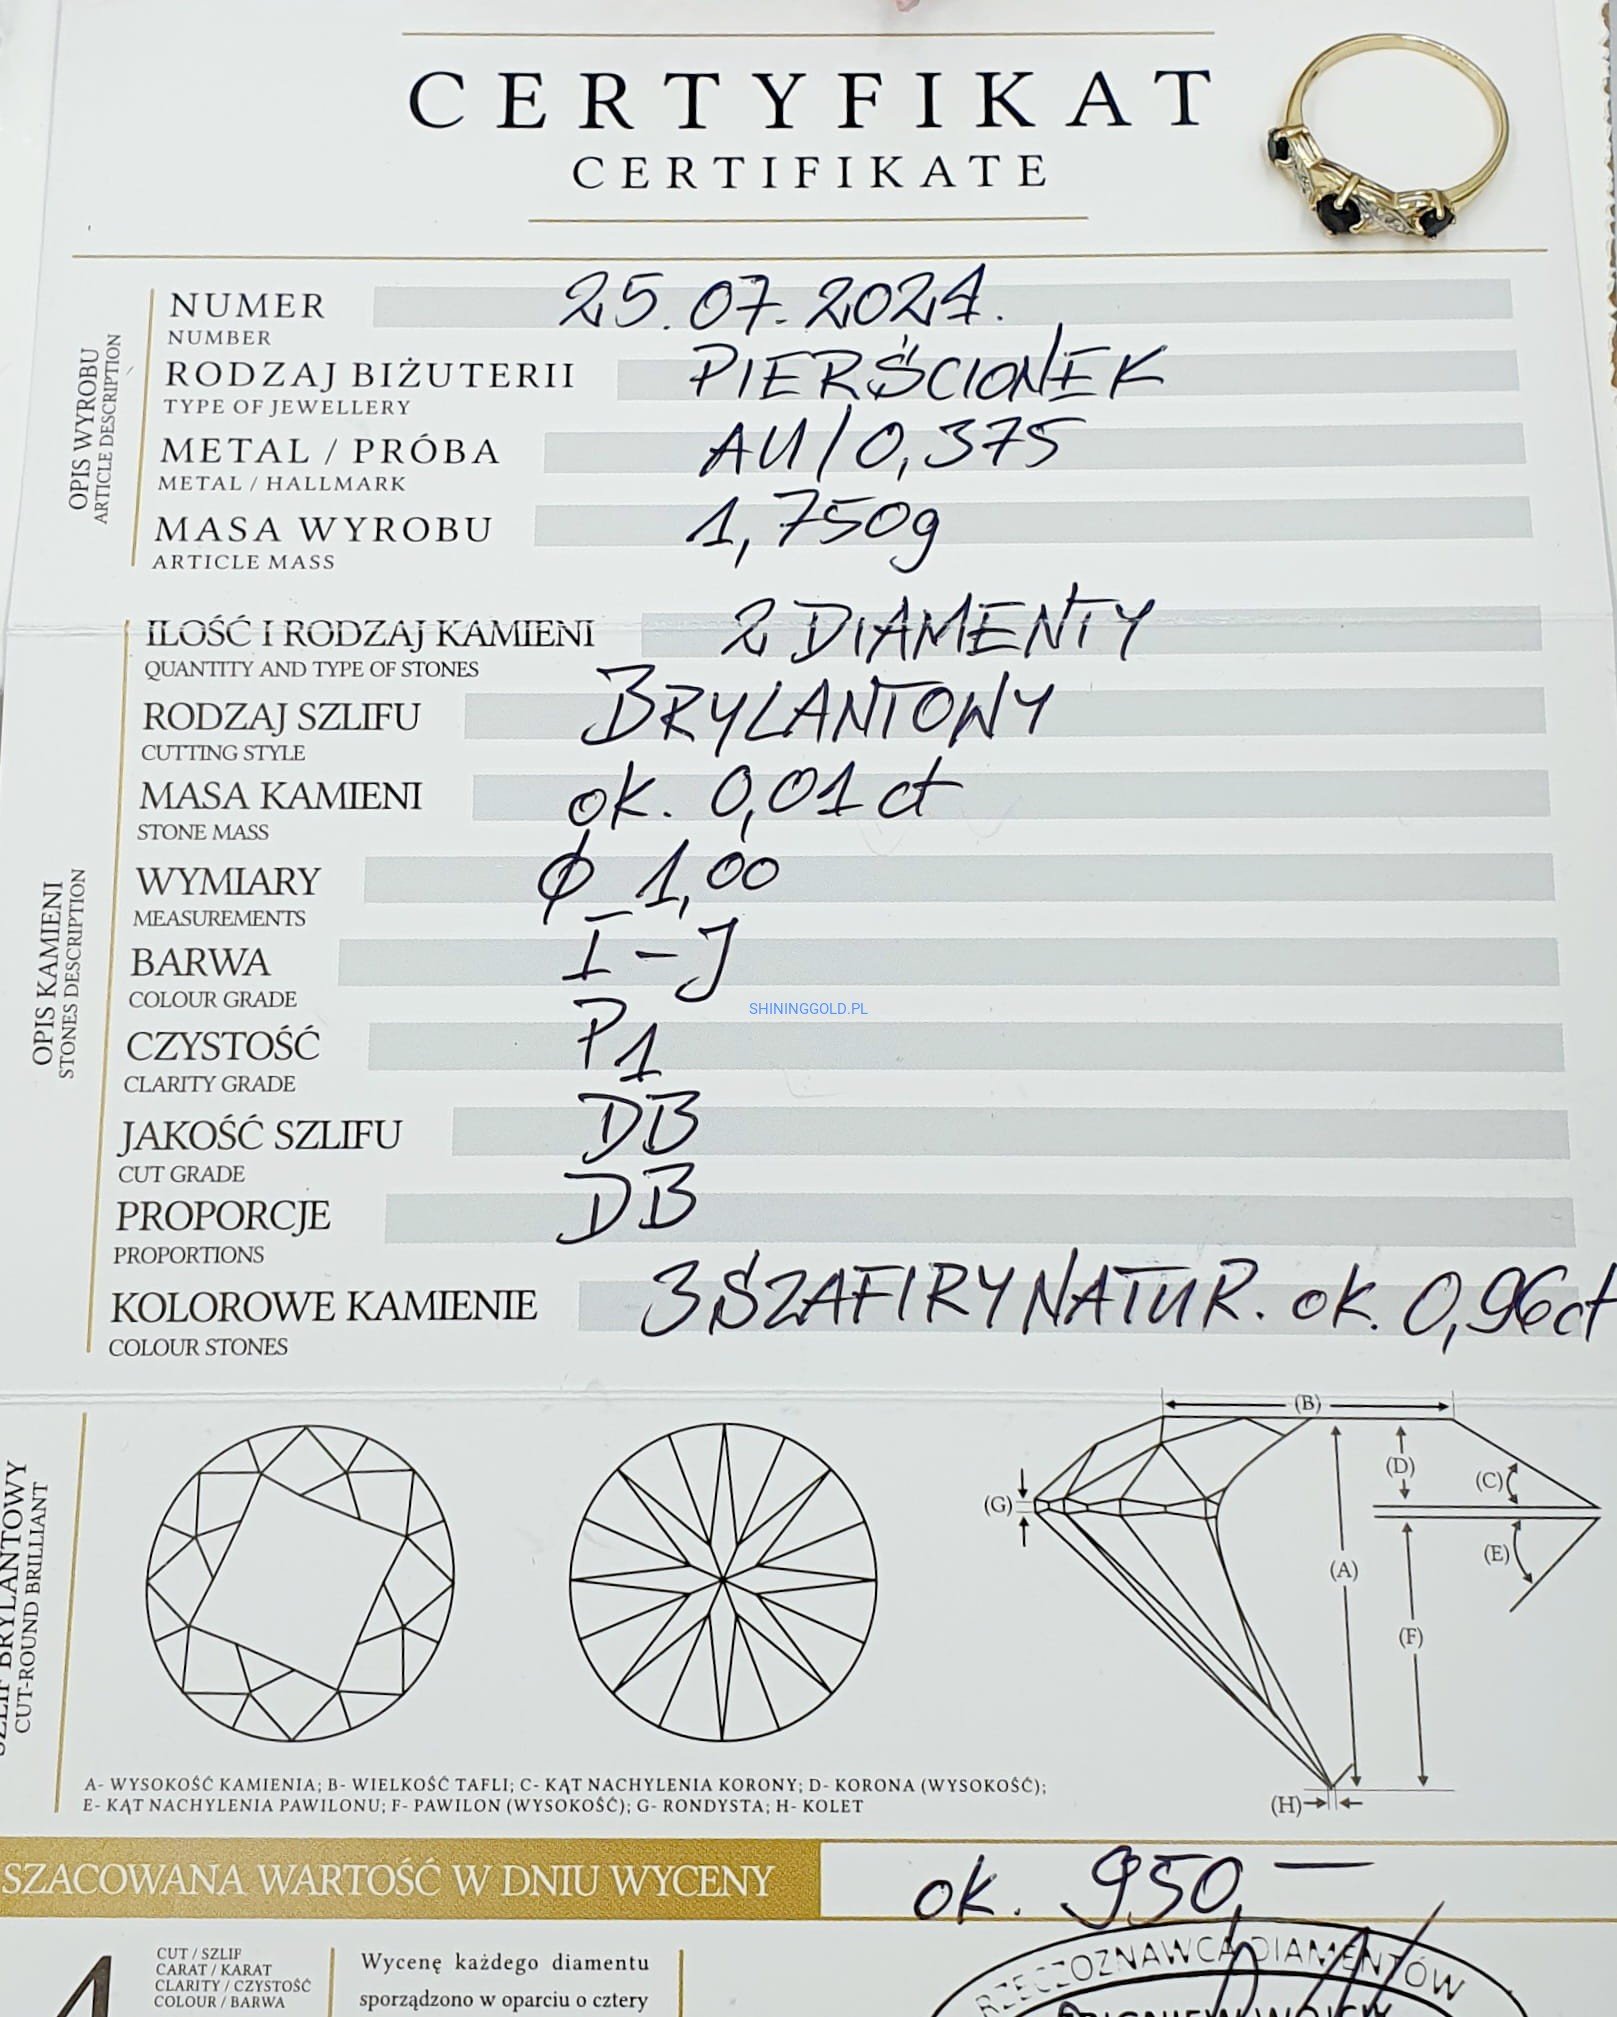 CERTYFIKAT
CERTIFIKATE
OPIS WYROBU
ARTICLE DESCRIPTION
NUMER 25.07.2024.
NUMBER
RODZAJ BIŻUTERII PIERŚCIONEK
TYPE OF JEWELLERY
METAL / PRÓBA AU/0,375
METAL / HALLMARK
MASA WYROBU 1,750g
ARTICLE MASS
OPIS KAMIENI
STONES DESCRIPTION
ILOŚĆ I RODZAJ KAMIENI 2 DIAMENTY
QUANTITY AND TYPE OF STONES
RODZAJ SZLIFU BRYLANTOWY
CUTTING STYLE
MASA KAMIENI ok. 0,01 ct
STONE MASS
WYMIARY ϕ 1,00
MEASUREMENTS
BARWA I-J
COLOUR GRADE
SHININGGOLD.PL
CZYSTOŚĆ P1
CLARITY GRADE
JAKOŚĆ SZLIFU DB
CUT GRADE
PROPORCJE DB
PROPORTIONS
KOLOROWE KAMIENIE 3 SZAFIRY NATUR. ok. 0,96ct
COLOUR STONES
SZLIF BRYLANTOWY
CUT-ROUND BRILLIANT
(B)
(D)
(C)
(G)
(E)
(A)
(F)
(H)
A- WYSOKOŚĆ KAMIENIA; B- WIELKOŚĆ TAFLI; C- KĄT NACHYLENIA KORONY; D- KORONA (WYSOKOŚĆ);
E- KĄT NACHYLENIA PAWILONU; F- PAWILON (WYSOKOŚĆ); G- RONDYSTA; H- KOLET
SZACOWANA WARTOŚĆ W DNIU WYCENY ok. 950,—
4
CUT / SZLIF
CARAT / KARAT
CLARITY / CZYSTOŚĆ
COLOUR / BARWA
Wycenę każdego diamentu
sporządzono w oparciu o cztery
RZECZOZNAWCA DIAMENTÓW